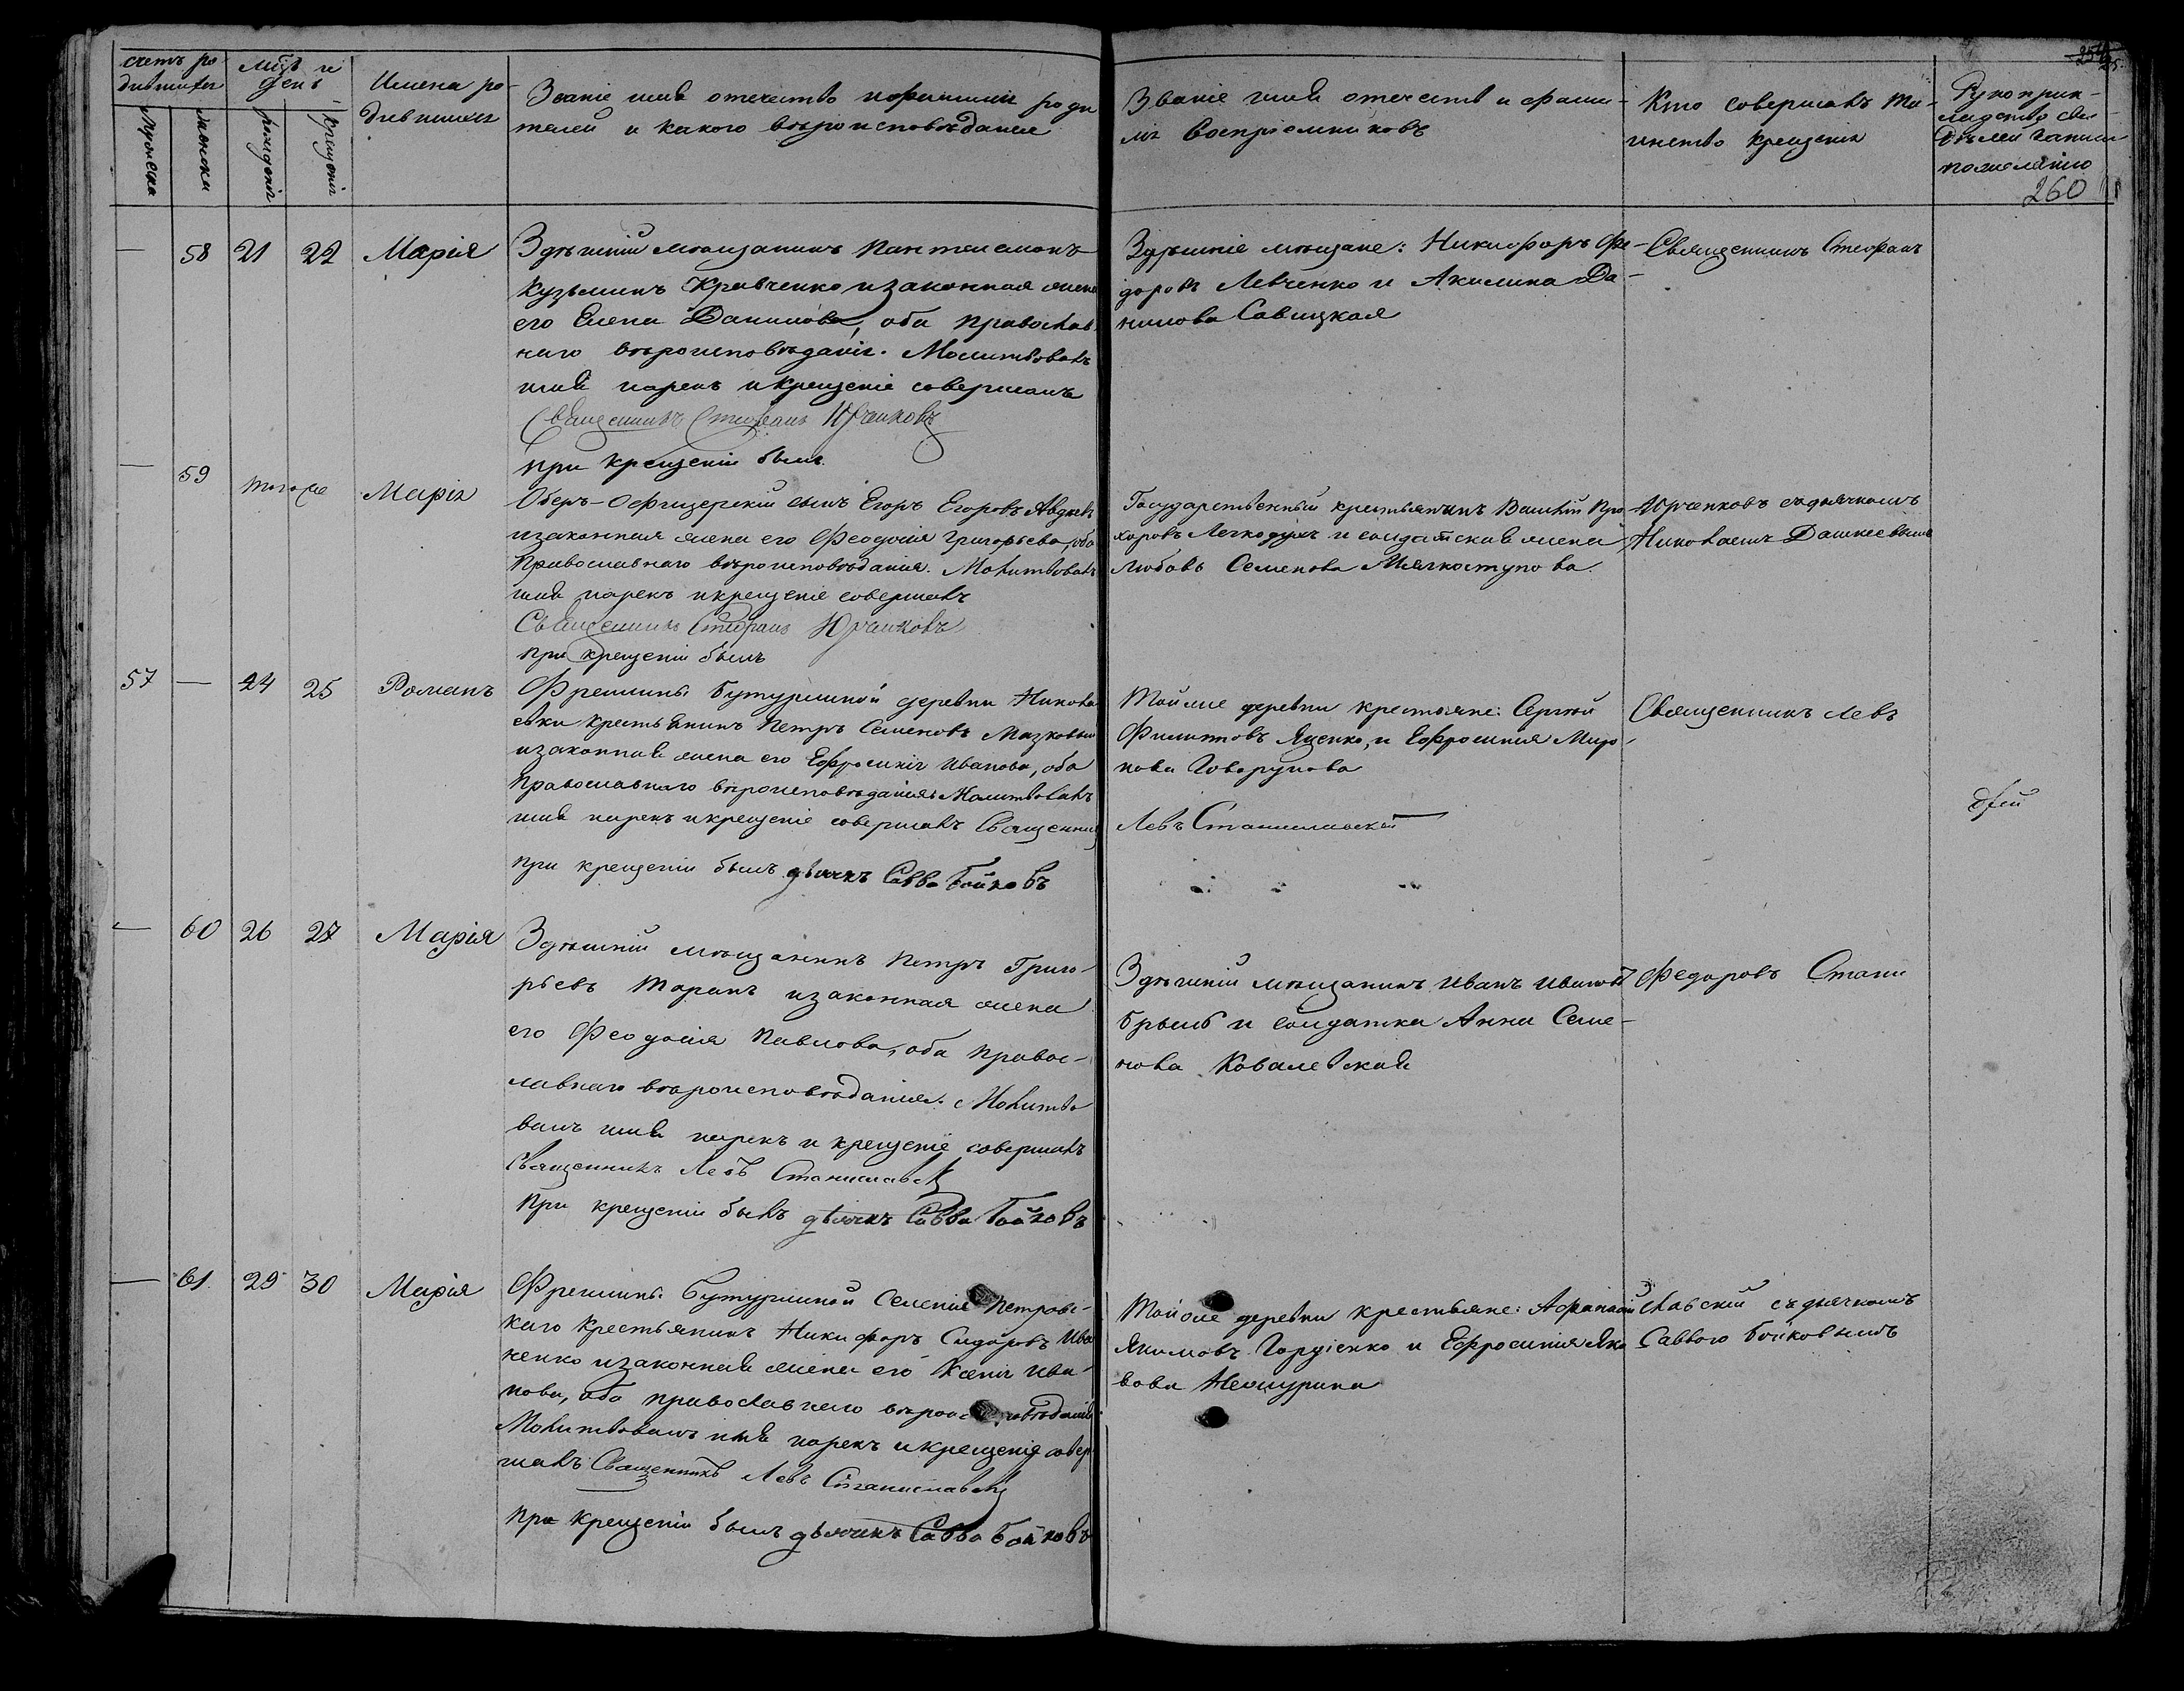 счетъ ро
дившихся
мужеска
женска
Мѣс. и
день
рожденія
крещенія
Имена ро-
дившихся
Званіе имя отечество и фамилія роди
телей и какого вѣроисповѣданія
Званіе имя отечеств и фами-
лія Воспріемниковъ
Кто совершалъ та-
инство крещенія
Рукоприк-
ладство сви
дѣтелей записи
по желанію
260
— 58 21 22 Марія
Здѣшній мѣщанинъ Пантелеимонъ
Кузьминъ Кравченко и законная жена
его Елена Данилова, оба православ-
наго вѣроисповѣданія. Молитвовалъ
имя нарекъ и крещеніе совершалъ
Священникъ Стефанъ Юрченковъ
при крещеніи былъ
Здѣшніе мѣщане: Никифоръ Фе-
доровъ Левченко и Акилина Да-
нилова Савицкая
Священникъ Стефанъ
— 59 тогоже Марія
Оберъ-Офицерскій сынъ Егоръ Егоровъ Авдѣевъ
и законная жена его Феодосія Григорьева, оба
Православнаго вѣроисповѣданія. Молитвовалъ
имя нарекъ и крещеніе совершалъ
Священникъ Стефанъ Юрченковъ
при крещеніи былъ
Государственный крестьянинъ Василій Про
хоровъ Легкодухъ и солдатская жена
Любовь Семенова Мягкоступова.
Юрченковъ съ дьячкомъ
Николаемъ Дашкеевымъ
57 — 24 25 Романъ
Фрейлины Бутурлиной деревни Никола
евки крестьянинъ Петръ Семеновъ
и законная жена его Ефросинія Иванова, оба
Православнаго вѣроисповѣданія Молитвовалъ
имя нарекъ и крещеніе совершалъ Священникъ
при крещеніи былъ дьячкъ Савва Бойковъ
Той же деревни крестьяне: Сергій
Филиповъ Яценко, и Ефросинія Миро-
нова Говорунова
Левъ Станиславскій
Священникъ Левъ
— 60 26 27 Марія
Здѣшній мѣщанинъ Петръ Григо-
рьевъ Таранъ и законная жена
его Феодосія Павлова, оба правос-
лавнаго вѣроисповѣданія. Молитво
валъ имя нарекъ и крещеніе совершалъ
Священникъ Левъ Станиславск
При крещеніи былъ дьячкъ Савва Бойковъ
Здѣшній мѣщанинъ Иванъ Ивановъ
и солдатка Анна Семе-
нова Ковалевская
Федоровъ Стани
— 61. 29 30 Марія
Фрейлины Бутурлиной Селенія Петровс-
каго Крестьянинъ Никифоръ Сидоровъ Ива
ненко и законная жена его Ксенія Ива-
нова, оба православнаго вѣроисповѣданія
Молитвовалъ имя нарекъ и крещеніе совер-
шалъ Священникъ Левъ Станиславскій
При крещеніи былъ дьячкъ Савва Бойковъ
Той же деревни крестьяне: Афанасій
Якимовъ Гордіенко и Ефросинія Яко
вова
славскій съ дьячкомъ
Саввою Бойковымъ